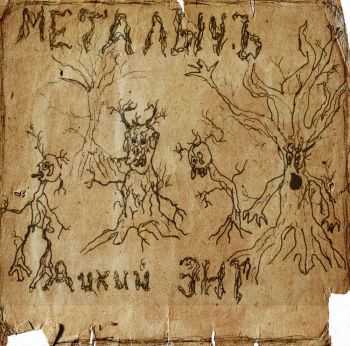 МЕТАЛЫЧЪ
Дикий ЭНТ